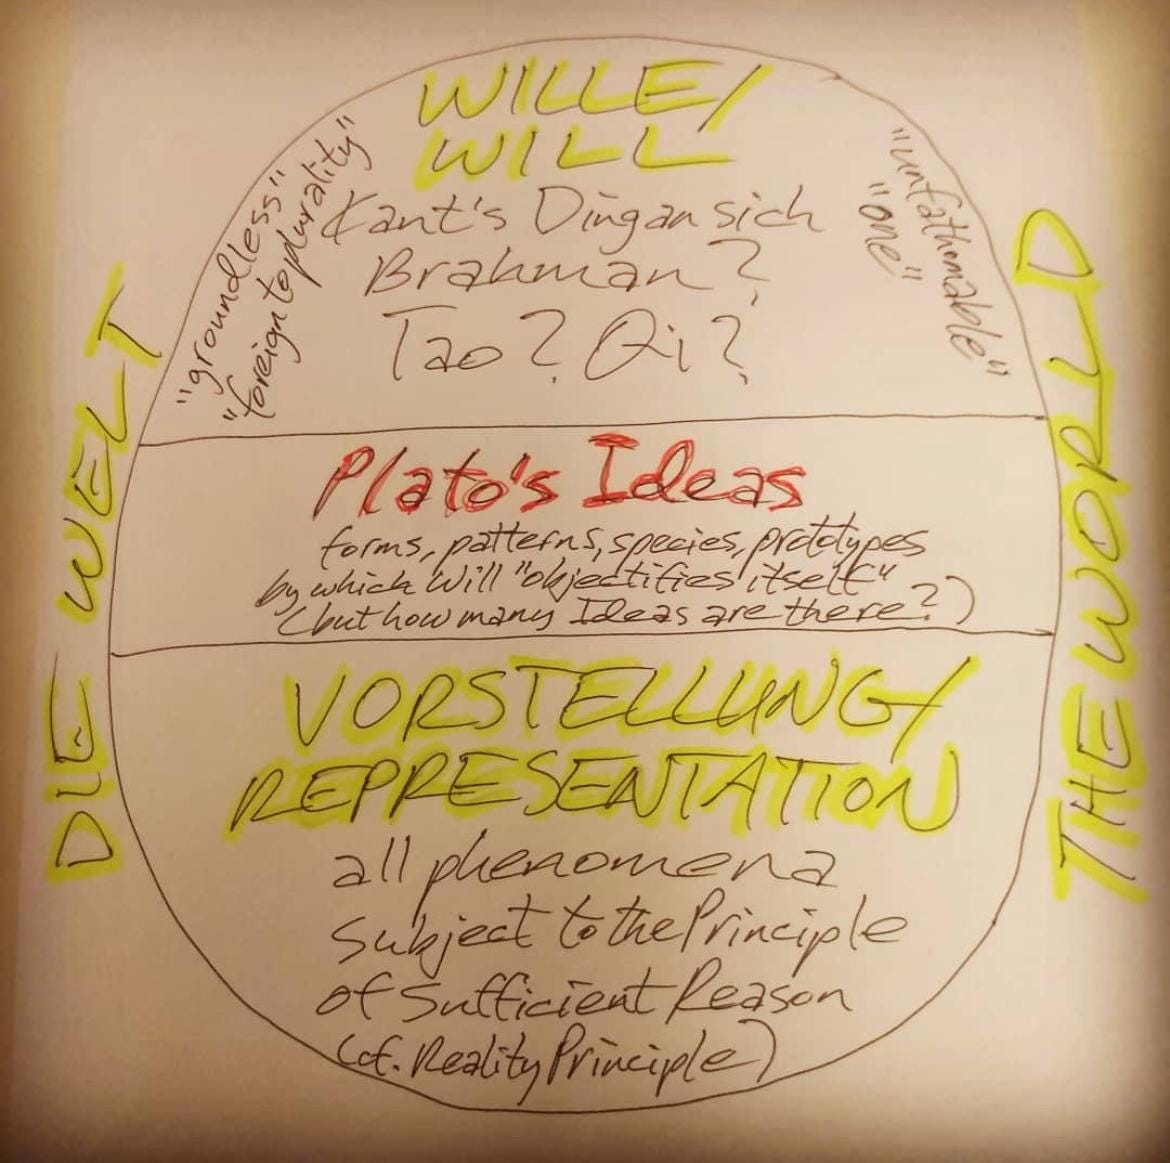 WILLE/
WILL
"groundless"
"foreign to plurality"
"unfathomable"
"one"
Kant's Ding an sich
Brahman?
Tao? Qi?
DIE WELT
THE WORLD
Plato's Ideas
forms, patterns, species, prototypes
by which Will "objectifies itself"
(but how many Ideas are there?)
VORSTELLUNG/
REPRESENTATION
all phenomena
subject to the Principle
of Sufficient Reason
(cf. Reality Principle)